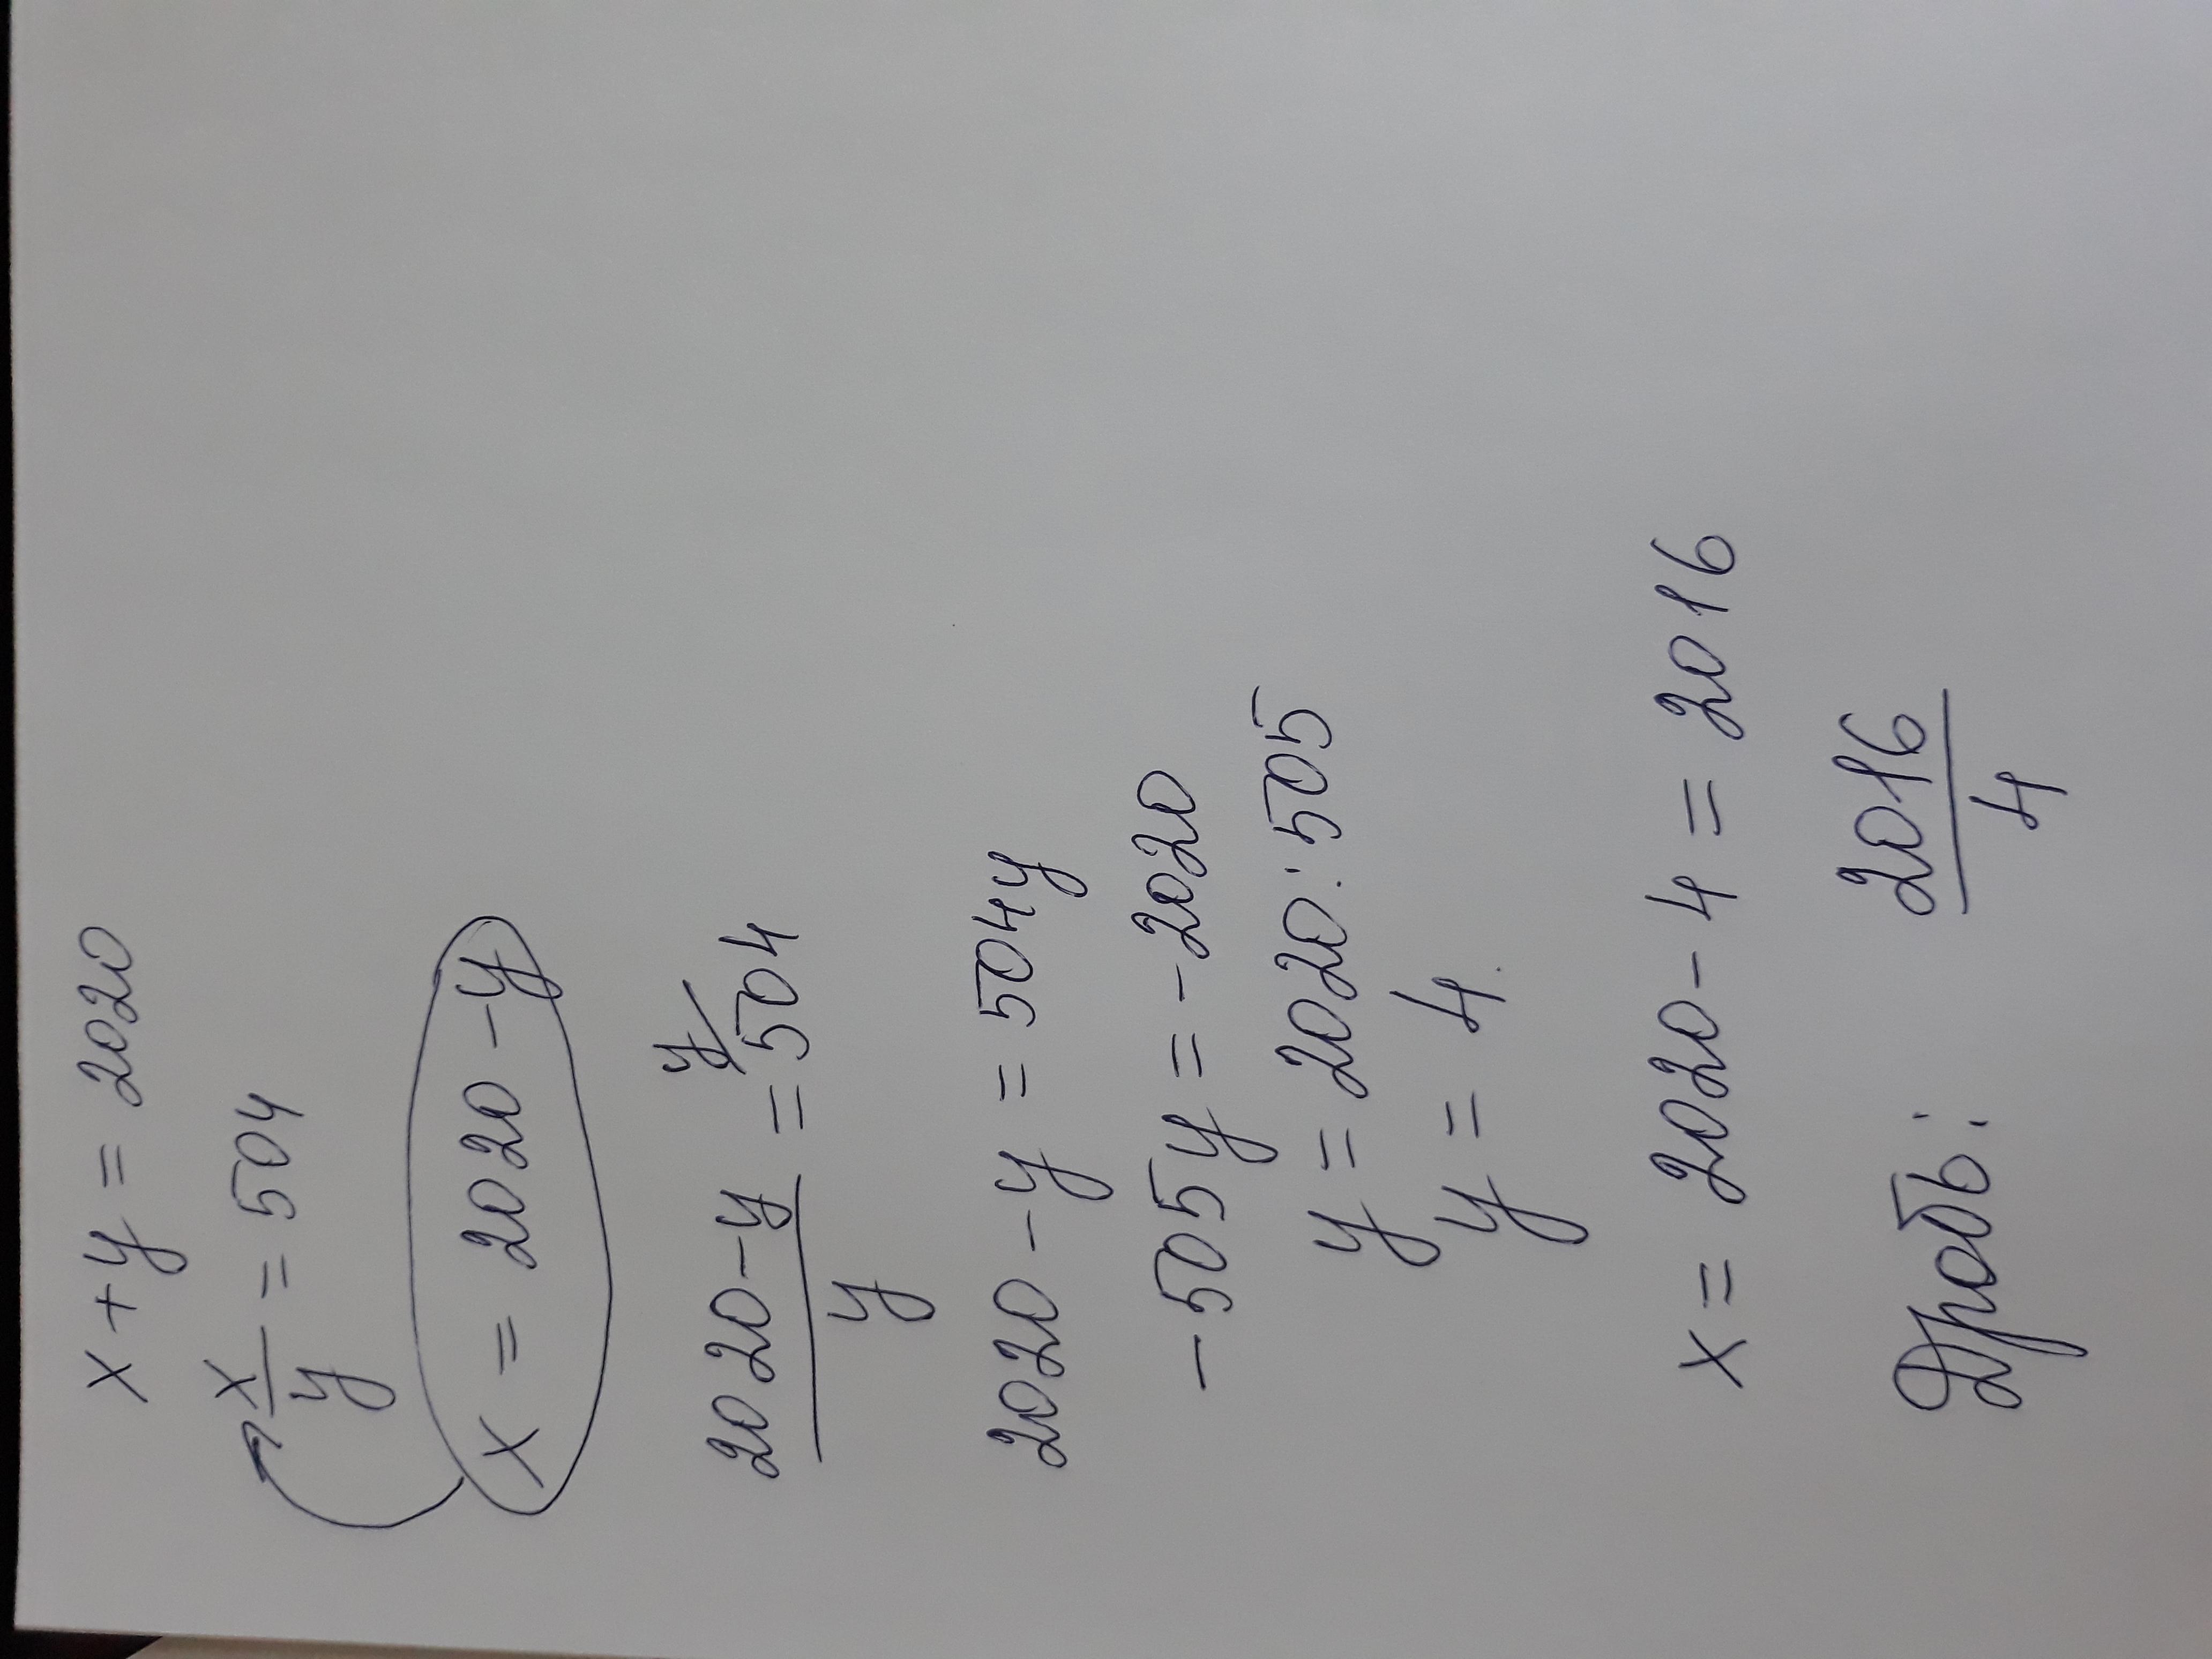 x + y = 2020
x/y = 504
x = 2020 - y
2020 - y / y = 504 y/
2020 - y = 504y
- 505y = - 2020
y = 2020 : 505
y = 4.
x = 2020 - 4 = 2016
Дробь: 2016/4